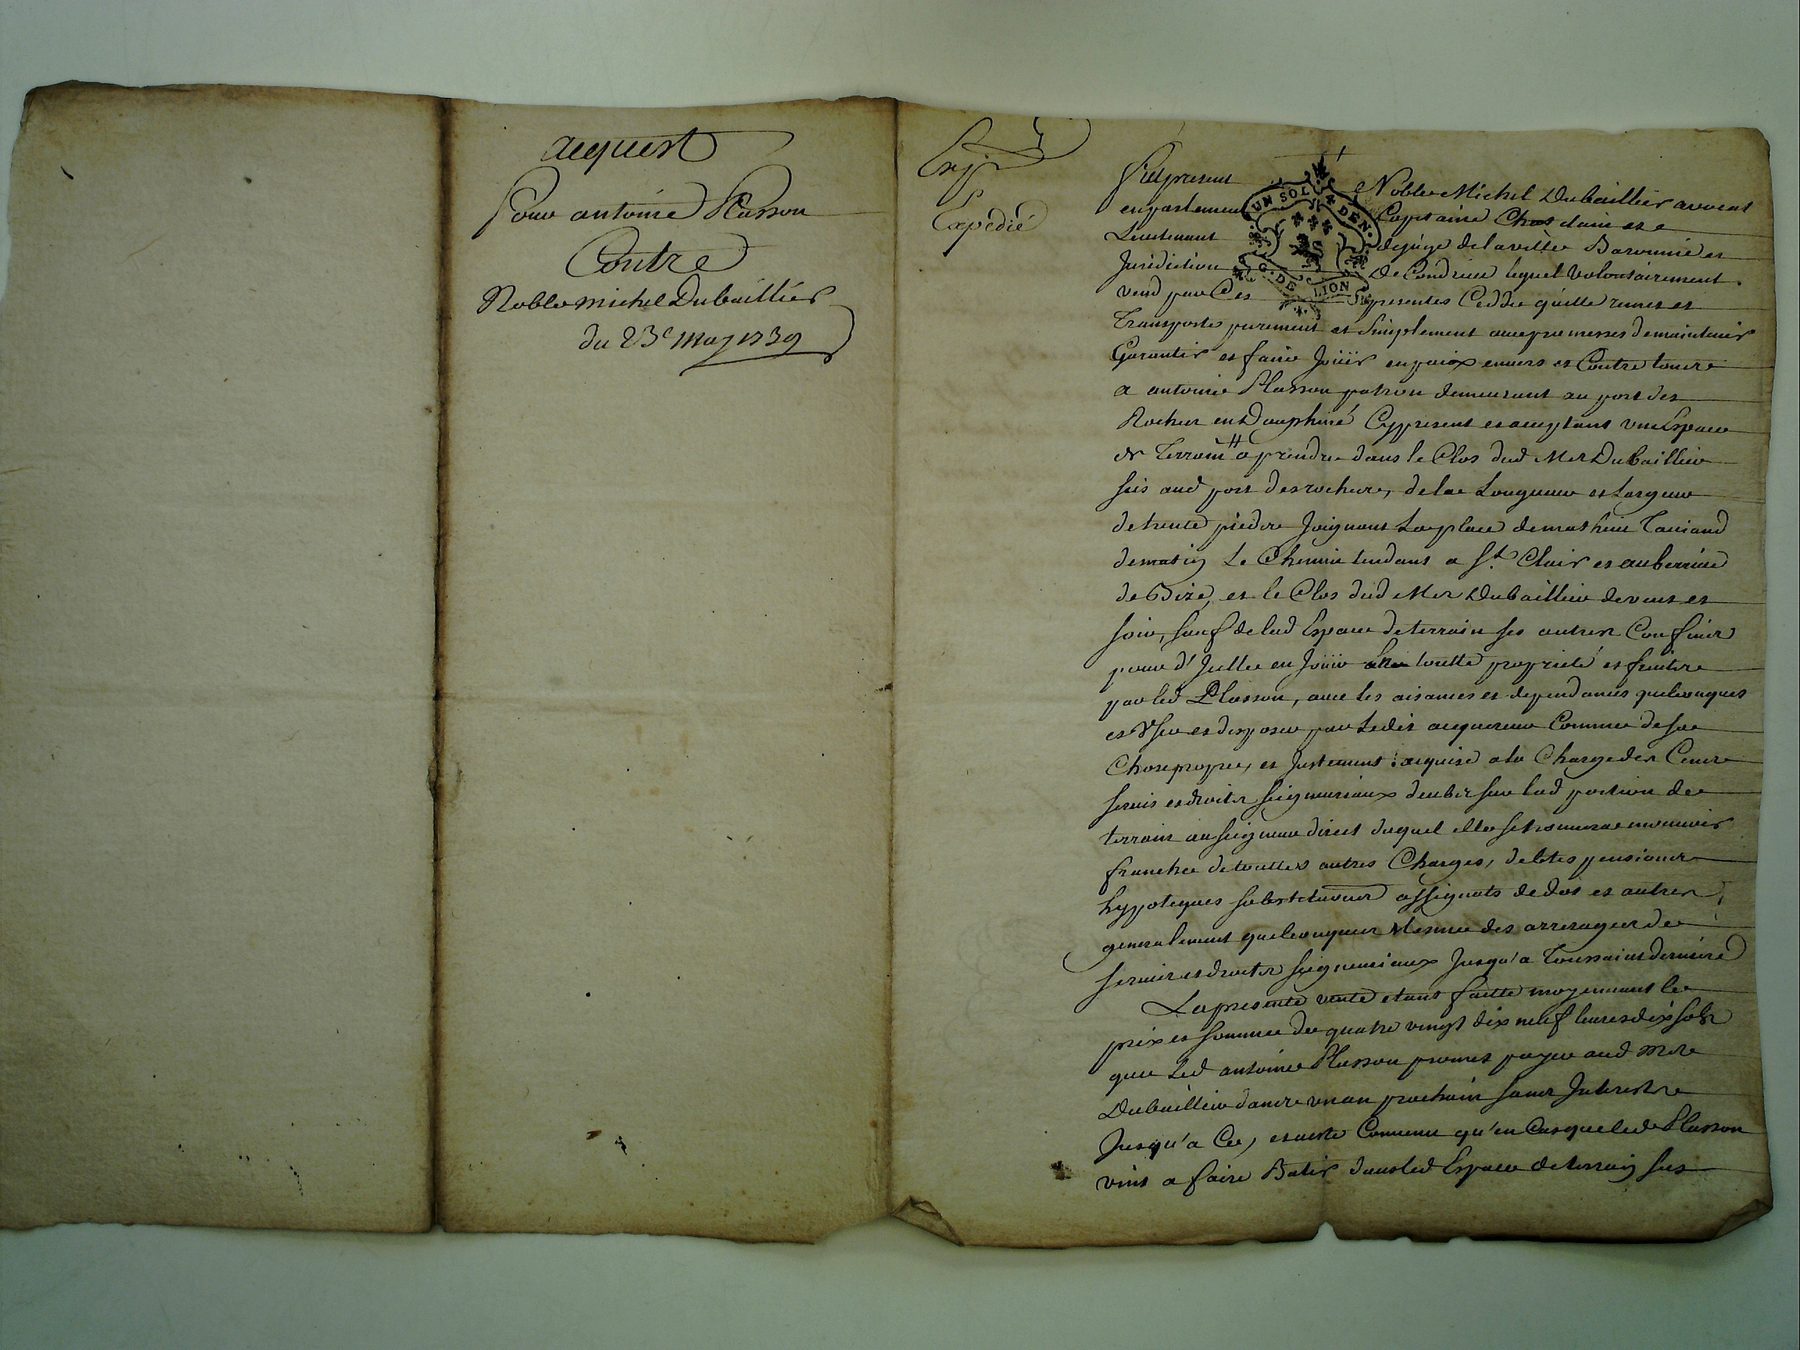 acquest
Pour antoine Plasson
Contre
Noble michel Dubaillier
du 23e may 1739
Exp.
Expedié
Fut present Noble Michel Dubaillier avocat
en parlement Capitaine Chatelain et
Lieutenant de juge de la ville Baronnie et
Juridiction de Condrieu lequel volontairement
vend par Ces presentes Cedde quitte remet et
Transporte purement et Simplement avec promesses de maintenir
Garantir et faire Joüir en paix envers et Contre tous
a antoine Plasson patron demeurant au port des
Rochers en Dauphiné Cy present et acceptant un Espace
de Terrain a prendre dans le Clos dud Mr Dubaillier
sis aud port des rochers, de la Longueur et Largeur
de trente pieds Joignant La place de mathieu
de matin Le Chemin tendant a St Clair et auberive
de Bize, et le Clos dud Mr Dubaillier de vent et
soir, sauf delad Espace de terrain ses autres Confins
pour d'Icelle en Joüir toutte proprieté et fruits
par led Plasson, avec les aisances et dependances quelconques
et User et disposer par Ledit acquereur Comme de sa
Chose propre, et Justement acquise a la Charge des Cens
servis et droits seigneuriaux deubs sur lad portion de
terrain au seigneur direct duquel elle se trouvera mouvoir
franche de touttes autres Charges, debtes pensions
hypoteques substitutions assignats de dot et autres
generalement quelconques Mesme des arrerages de
servis et droits seigneuriaux Jusqu'a Toussaint derniere
La presente vente etant faitte moyennant le
prix et somme de quatre vingt dix neuf livres dix sols
que Led antoine Plasson promet payer aud Mr
Dubaillier dans un an prochain sans Interests
Jusqu'a Ce, et a esté Convenu qu'en Cas que led Plasson
vint a faire Batir dans led Espace de terrain sus
UN SOL DEN.
G. DE LION